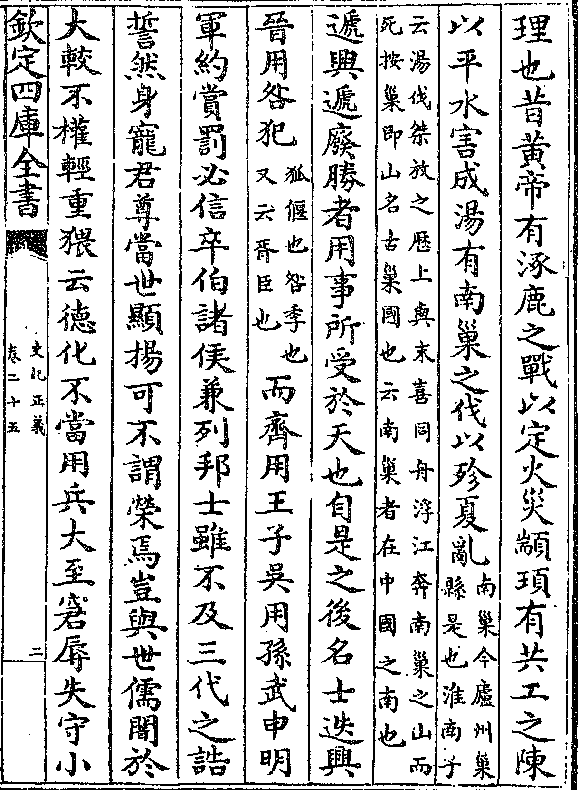 理也昔黃帝有涿鹿之戰以定火災顓頊有共工之陳
以平水害成湯有南巢之伐以殄夏亂南巢今廬州巢縣是也淮南子
云湯伐桀放之歷上與末喜同舟浮江奔南巢之山而死按巢即山名古巢國也云南巢者在中國之南也
遞興遞廢勝者用事所受於天也自是之後名士迭興
晉用咎犯狐偃也咎季也又云胥臣也而齊用王子吳用孫武申明
軍約賞罰必信卒伯諸侯兼列邦土雖不及三代之誥
誓然身寵君尊當世顯揚可不謂榮焉豈與世儒闇於
大較不權輕重猥云德化不當用兵大至窘辱失守小
欽定四庫全書
史記正義
卷二十五
二